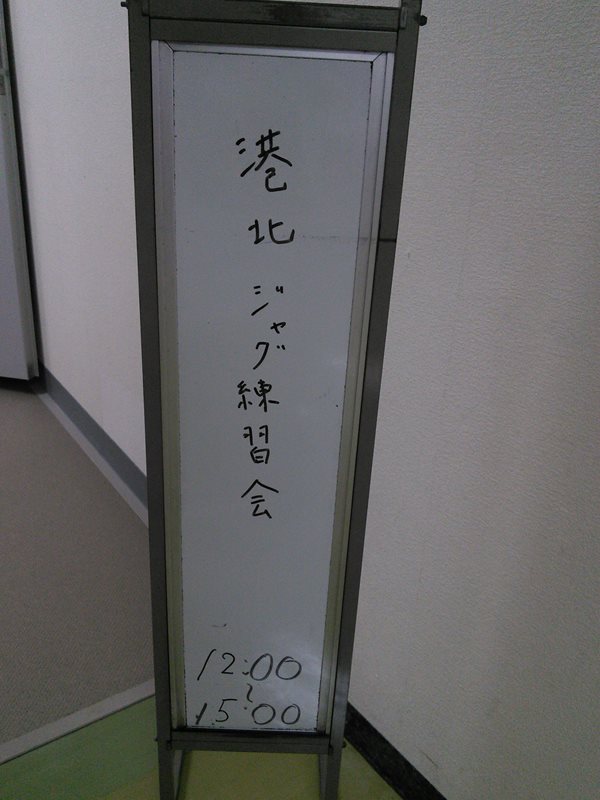 港北ジャグ練習会
12:00
〜
15:00